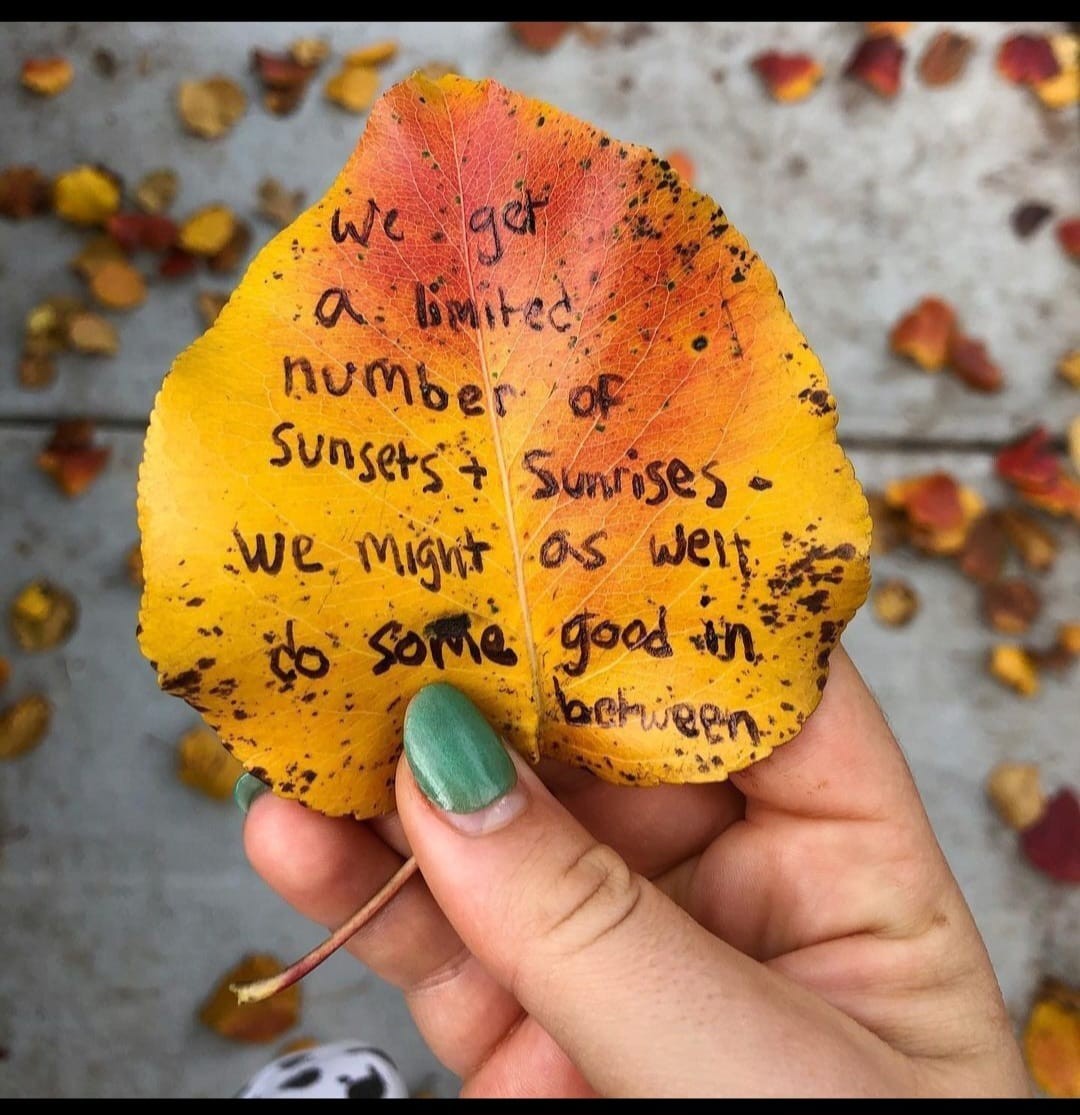 We get
a limited
number of
sunsets + sunrises.
We might as well
do some good in
between